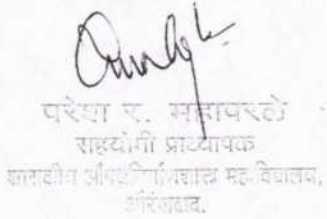 परेश र. महापरळे
सहयोगी प्राध्यापक
शासकीय औषधनिर्माणशास्त्र महाविद्यालय,
औरंगाबाद.